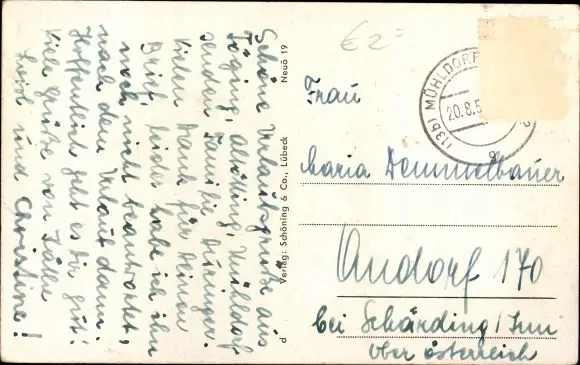 Schöne Urlaubsgrüße aus
Töging, Altötting, Mühldorf
senden Familie
Vielen Dank für Deinen
Brief, leider habe ich ihn
noch nicht beantwortet,
nach dem Urlaub dann.
Hoffentlich geht es Dir gut!
Viele Grüße von Fam.
und Christine!
d Verlag: Schöning & Co., Lübeck Neuö 19
€ 2=
(13b) MÜHLDORF
20.8.5
a
Frau
Maria Demmelbauer
Andorf 170
bei Schärding/Inn
Ober österreich